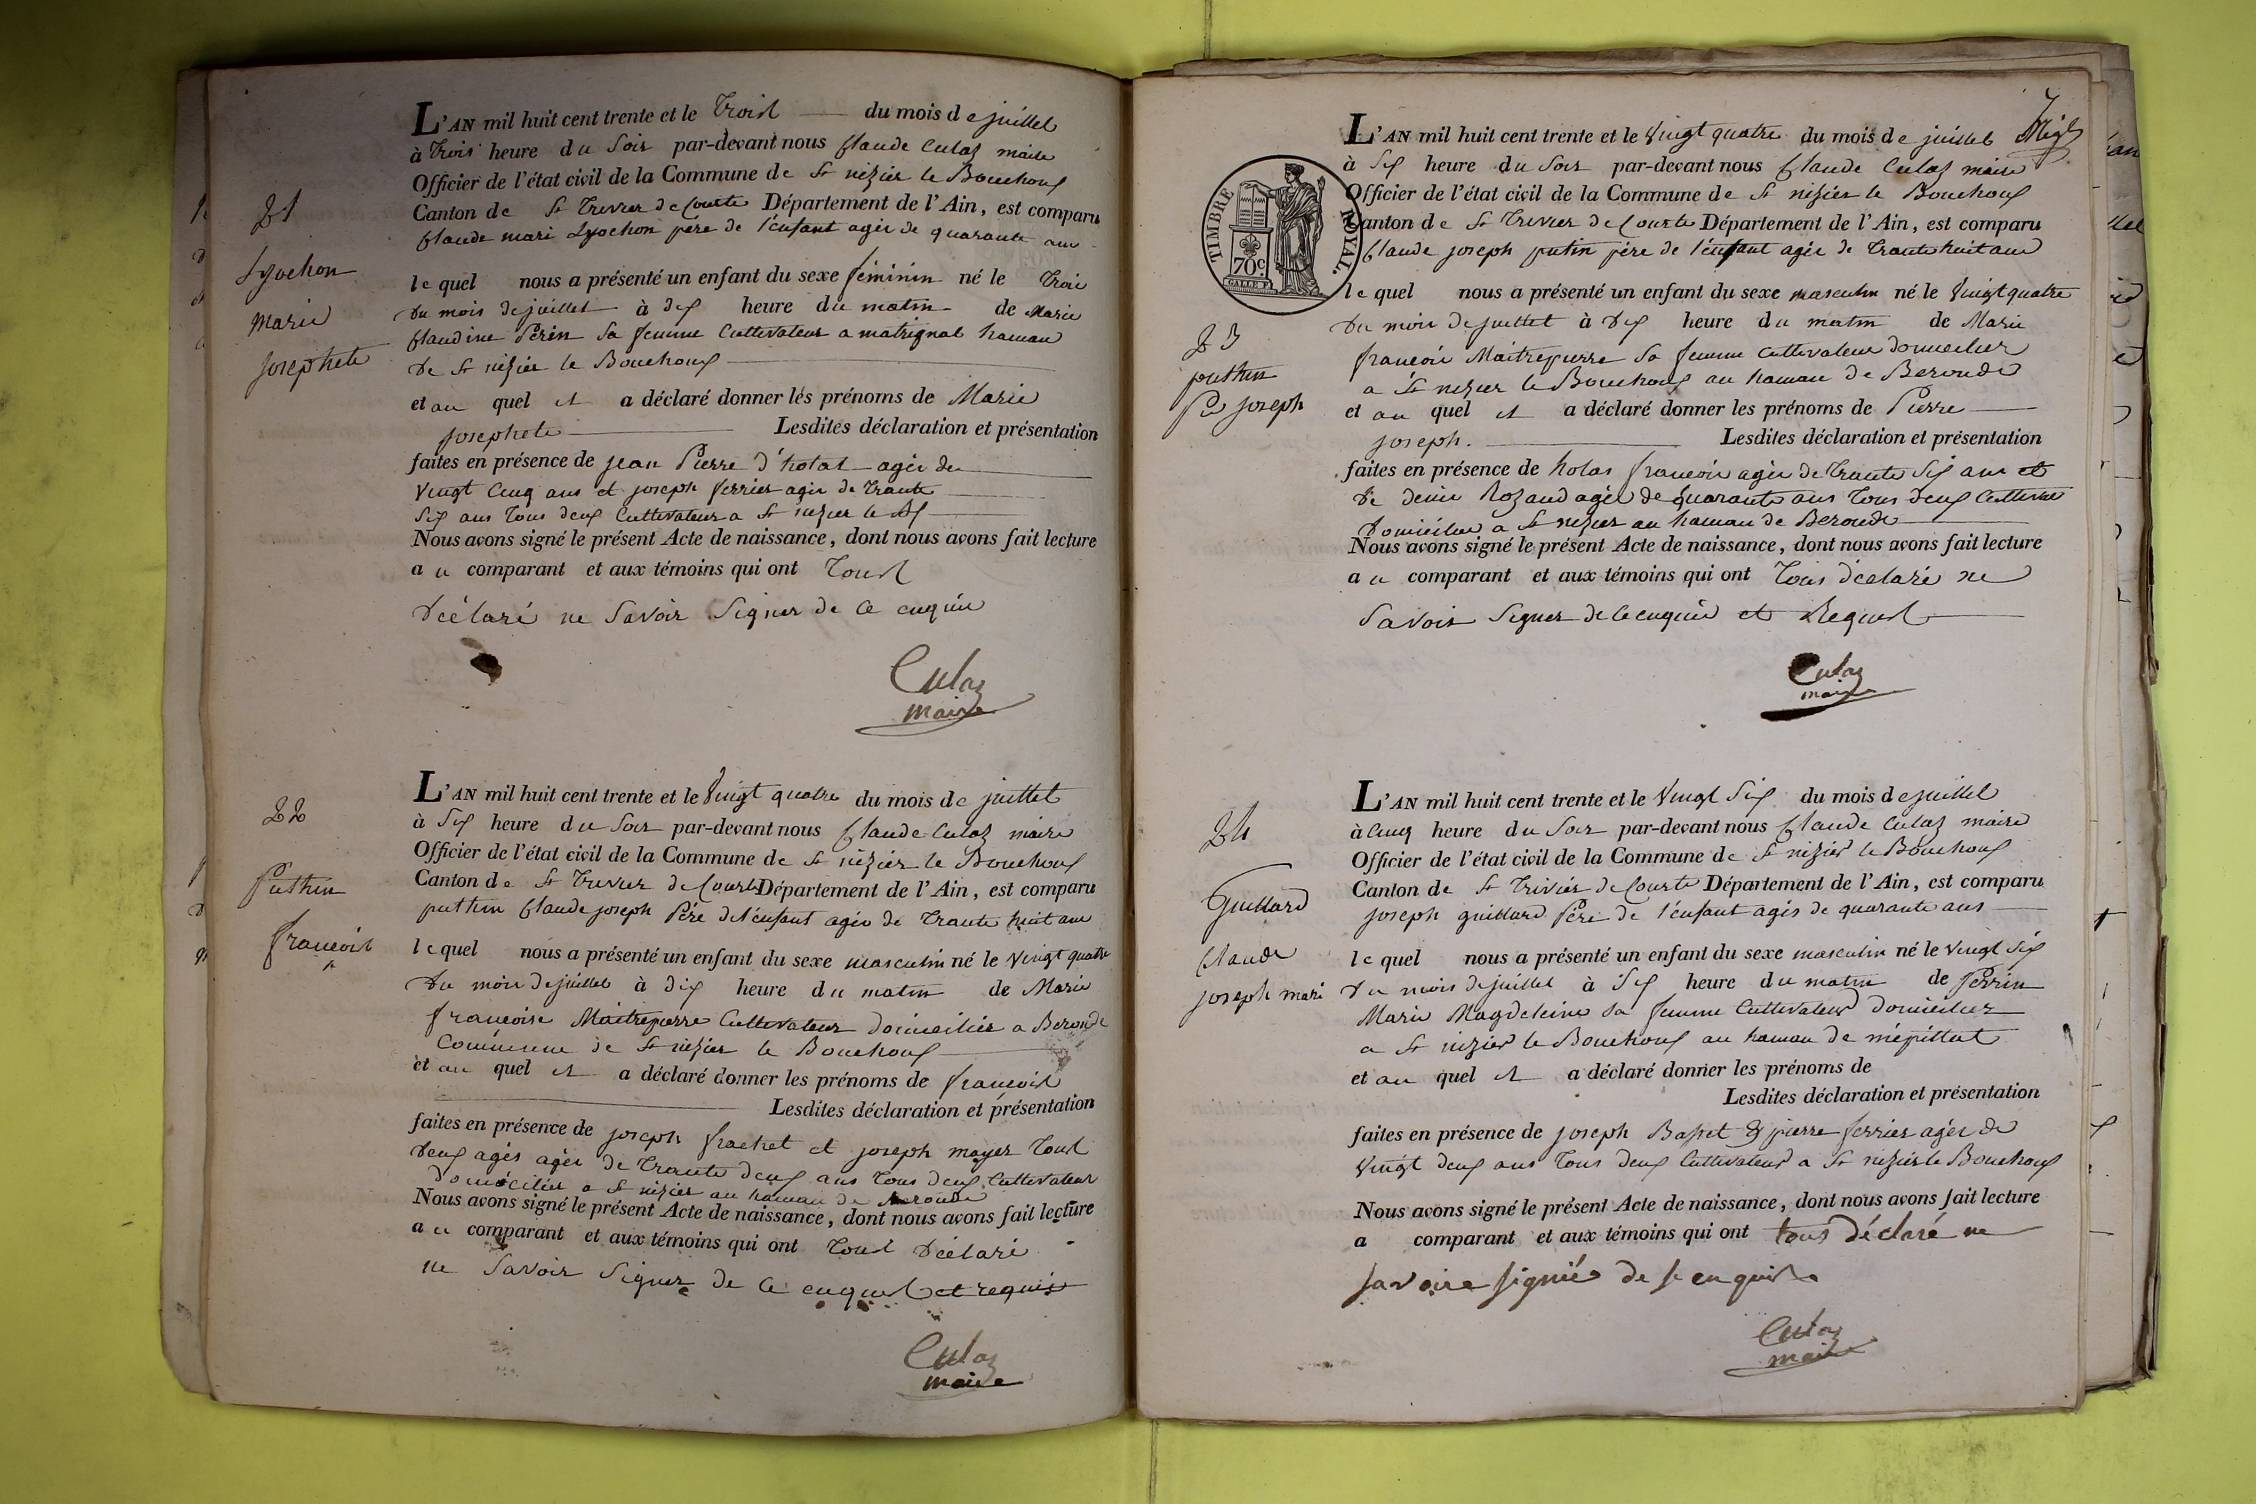 21
Lyochon
Marie
josephete
L'AN mil huit cent trente et le trois du mois de juillet
à trois heure du soir par-devant nous Claude Culaz maire
Officier de l'état civil de la Commune de St nizier le Bouchoux
Canton de St Trivier de Courte Département de l'Ain, est comparu
Claude mari Lyochon père de l'enfant agée de quarante ans
le quel nous a présenté un enfant du sexe féminin né le trois
du mois de juillet à dix heure du matin de Marie
Claudine Périn sa femme Cultivateur a matrignat hamau
de St nizier le Bouchoux
et au quel il a déclaré donner les prénoms de Marie
josephete Lesdites déclaration et présentation
faites en présence de jean Pierre d'hotat agée de
vingt Cinq ans et joseph ferrier agée de trante
Six ans tous deux Cultivateur a St nizier le Bx
Nous avons signé le présent Acte de naissance, dont nous avons fait lecture
a u comparant et aux témoins qui ont tous
déclaré ne Savoir Signer de ce enquie
Culaz
maire
22
Puthin
françois
L'AN mil huit cent trente et le vingt quatre du mois de juillet
à Six heure du Soir par-devant nous Claude Culaz maire
Officier de l'état civil de la Commune de St nizier le Bouchoux
Canton de St Trivier de Courte Département de l'Ain, est comparu
puthin Claude joseph Père de l'enfant agée de trante huit ans
le quel nous a présenté un enfant du sexe masculin né le vingt quatre
du mois de juillet à dix heure du matin de Marie
françoise Maitrepierre Cultivateur domicilier a Beronde
Commune de St nizier le Bouchoux
et au quel il a déclaré donner les prénoms de françois
Lesdites déclaration et présentation
faites en présence de joseph frachet et joseph mayer tous
deux agés agée de trante deux ans tous deux Cultivateur
domicilier a St nizier au hamau de Beronde
Nous avons signé le présent Acte de naissance, dont nous avons fait lecture
a u comparant et aux témoins qui ont tous déclaré
ne Savoir Signer de ce enquis et requis
Culaz
maire
7
TIMBRE ROYAL.
70c.
23
puthin
Pre joseph
L'AN mil huit cent trente et le vingt quatre du mois de juillet
à Six heure du Soir par-devant nous Claude Culaz maire
Officier de l'état civil de la Commune de St nizier le Bouchoux
Canton de St Trivier de Courte Département de l'Ain, est comparu
Claude joseph putin père de l'enfant agée de trante huit ans
le quel nous a présenté un enfant du sexe masculin né le vingt quatre
du mois de juillet à dix heure du matin de Marie
françoise Maitrepierre sa femme Cultivateur domicilier
a St nizier le Bouchoux au hamau de Beronde
et au quel il a déclaré donner les prénoms de Pierre
joseph. Lesdites déclaration et présentation
faites en présence de holas françois agée de trante Six ans et
de denis Rozand agée de quarante ans tous deux Cultivateur
domicilier a St nizier au hamau de Beronde
Nous avons signé le présent Acte de naissance, dont nous avons fait lecture
a u comparant et aux témoins qui ont tous déclaré ne
Savoir Signer de ce enquie et Requis
Culaz
maire
24
Guillard
Claude
joseph mari
L'AN mil huit cent trente et le vingt Six du mois de juillet
à Cinq heure du Soir par-devant nous Claude Culaz maire
Officier de l'état civil de la Commune de St nizier le Bouchoux
Canton de St Trivier de Courte Département de l'Ain, est comparu
joseph guillard Père de l'enfant agés de quarante ans
le quel nous a présenté un enfant du sexe masculin né le vingt Six
du mois de juillet à Six heure du matin de Perrin
Marie Magdeleine sa femme Cultivateur domicilier
a St nizier le Bouchoux au hamau de mépillat
et au quel il a déclaré donner les prénoms de
Lesdites déclaration et présentation
faites en présence de joseph Basset & pierre ferrier agée de
vingt deux ans tous deux Cultivateur a St nizier le Bouchoux
Nous avons signé le présent Acte de naissance, dont nous avons fait lecture
a comparant et aux témoins qui ont tous déclaré ne
savoire signié de se enquis
Culaz
maire